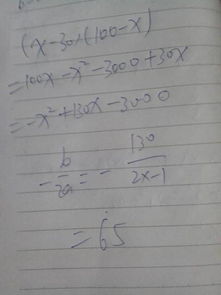 (x-30)(100-x)
=100x-x²-3000+30x
=-x²+130x-3000
-b/2a=-130/2x-1
=65